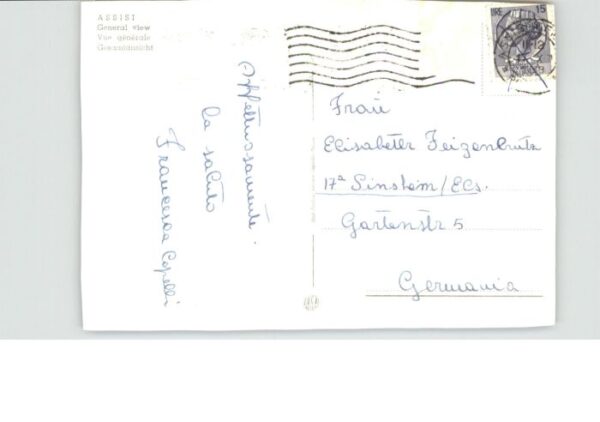 ASSISI
General view
Vue générale
Gesamtansicht
LIRE 15
Affettuosamente
la saluto
Francesca Capelli
Frau
Elisabeth Feigenbutz
17ª Sinsheim/Els.
Gartenstr 5
Germania